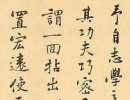 予自志學之
其功夫巧容
謂一面拈出
置宏遠使